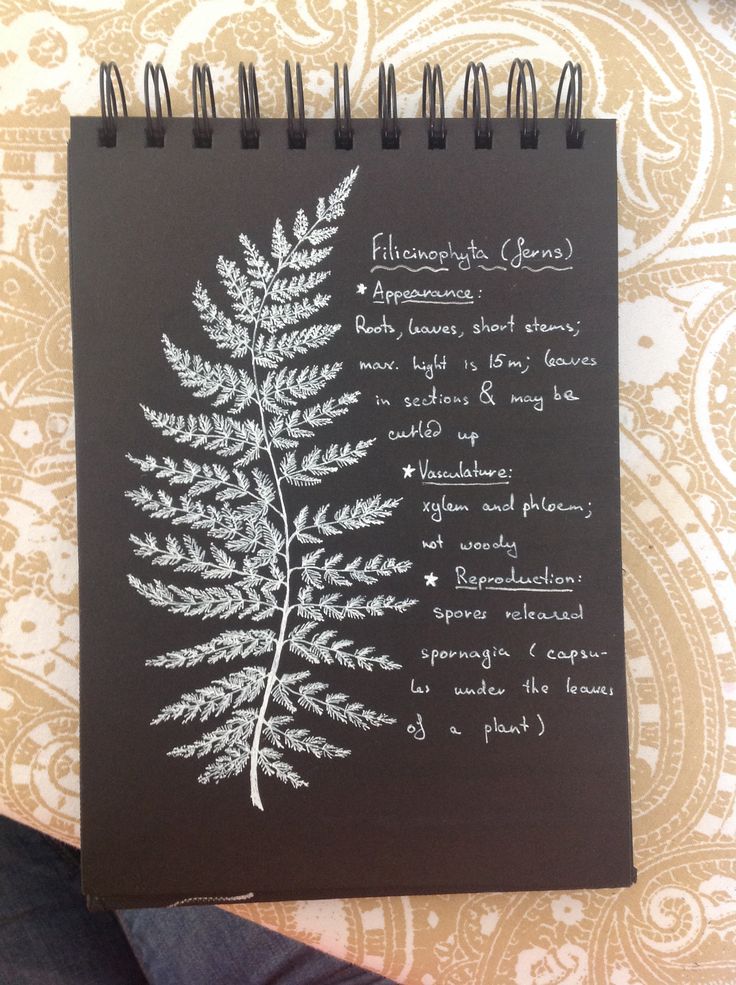 Filicinophyta (ferns)
* Appearance:
Roots, leaves, short stems;
max. hight is 15m; leaves
in sections & may be
curled up
* Vasculature:
xylem and phloem;
not woody
* Reproduction:
spores released
spornagia ( capsu-
les under the leaves
of a plant)